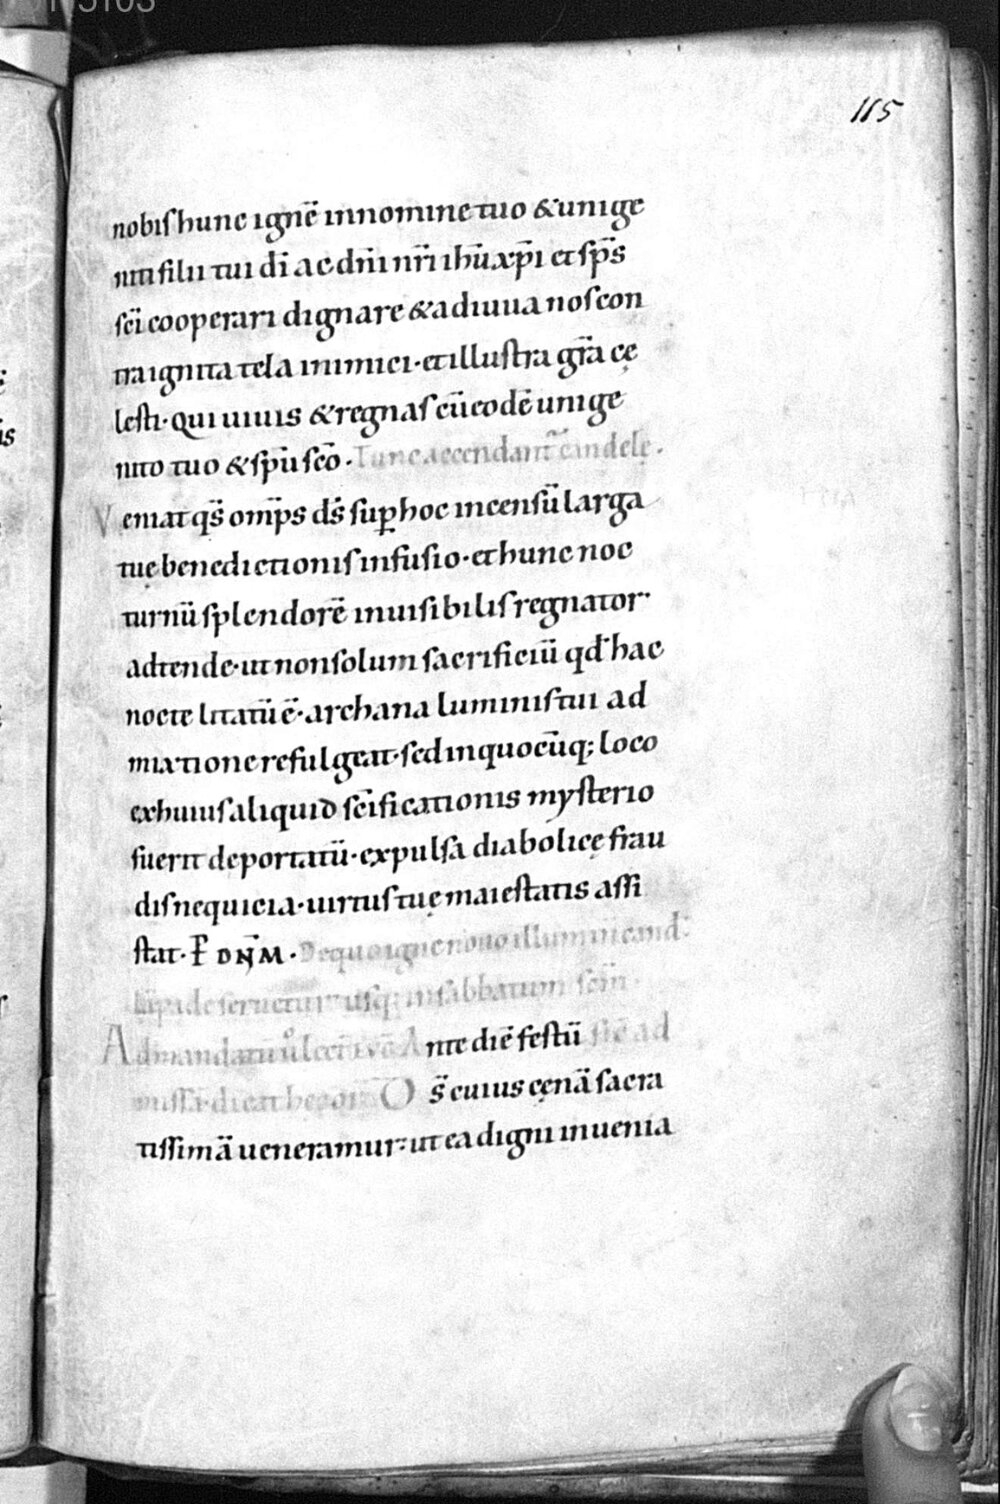 115
nobis hunc ignē innomine tuo & unige
niti filii tui dī ac dn̄i nr̄i ihū xp̄i et sp̄s
sc̄i cooperari dignare & adiuua nos con
tra ignita tela inimici · et illustra gr̄a cę
lesti · Qui uiuis & regnas cū eodē unige
nito tuo & sp̄u sc̄o · Tunc accendant̄ candelę .
Veniat qs̄ om̄ps ds̄ sup hoc incensū larga
tuę benedictionis infusio · et hunc noc
turnū splendorē inuisibilis regnator
adtende · ut non solum sacrificiū qd̄ hac
nocte litatū ē · archana luminis tui ad
mixtione refulgeat · sed inquocūq; loco
ex huius aliquid sc̄ificationis mysterio
fuerit deportatū · expulsa diabolicę frau
dis nequicia · uirtus tuę maiestatis assi
stat · P̄ DN̄M · De quo igne nouo illumin
usq; in sabbatum
Ad mandatū Ante diē festū ad
missā D s̄ cuius cęnā sacra
tissimā ueneramur · ut ea digni inuenia